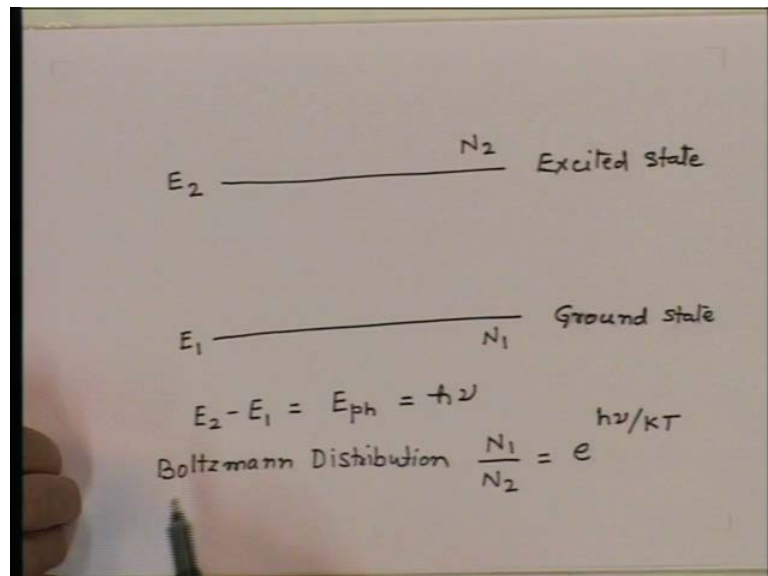 N₂
E₂ Excited state
E₁ N₁ Ground state
E₂ - E₁ = E_ph = hν
Boltzmann Distribution N₁/N₂ = e^(hν/KT)